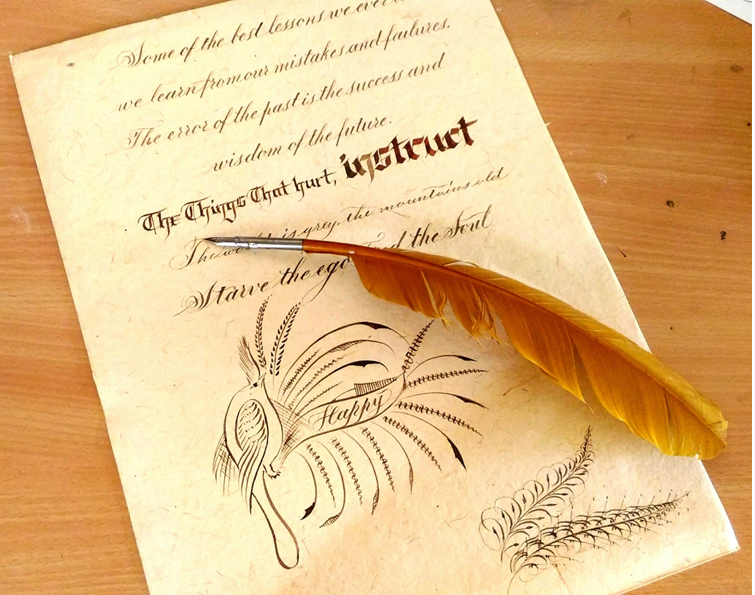 Some of the best lessons we ever
we learn from our mistakes and failures.
The error of the past is the success and
wisdom of the future.
The Things That hurt, instruct
The world is grey, the mountains old
Starve the ego feed the Soul
Happy